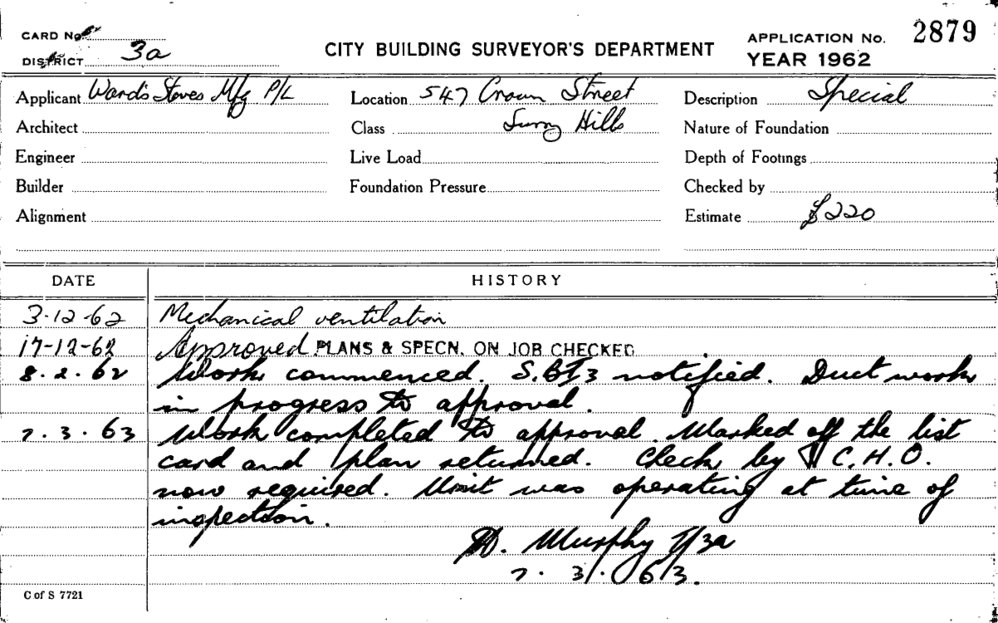 CARD No.
DISTRICT 3a
CITY BUILDING SURVEYOR'S DEPARTMENT
APPLICATION No. 2879
YEAR 1962
Applicant Ward's Stoves Mfg P/L
Location 547 Crown Street
Description Special
Architect
Class Surry Hills
Nature of Foundation
Engineer
Live Load
Depth of Footings
Builder
Foundation Pressure
Checked by
Alignment
Estimate £220
DATE HISTORY
3-12-62 Mechanical ventilation
17-12-62 Approved PLANS & SPECN. ON JOB CHECKED
8.2.62 Work commenced. notified. Duct work
in progress to approval.
7.3.63 Work completed to approval. Marked off the list
card and plan returned. Check by C.H.O.
now required. Unit was operating at time of
inspection.
Murphy
7.3.63.
C of S 7721